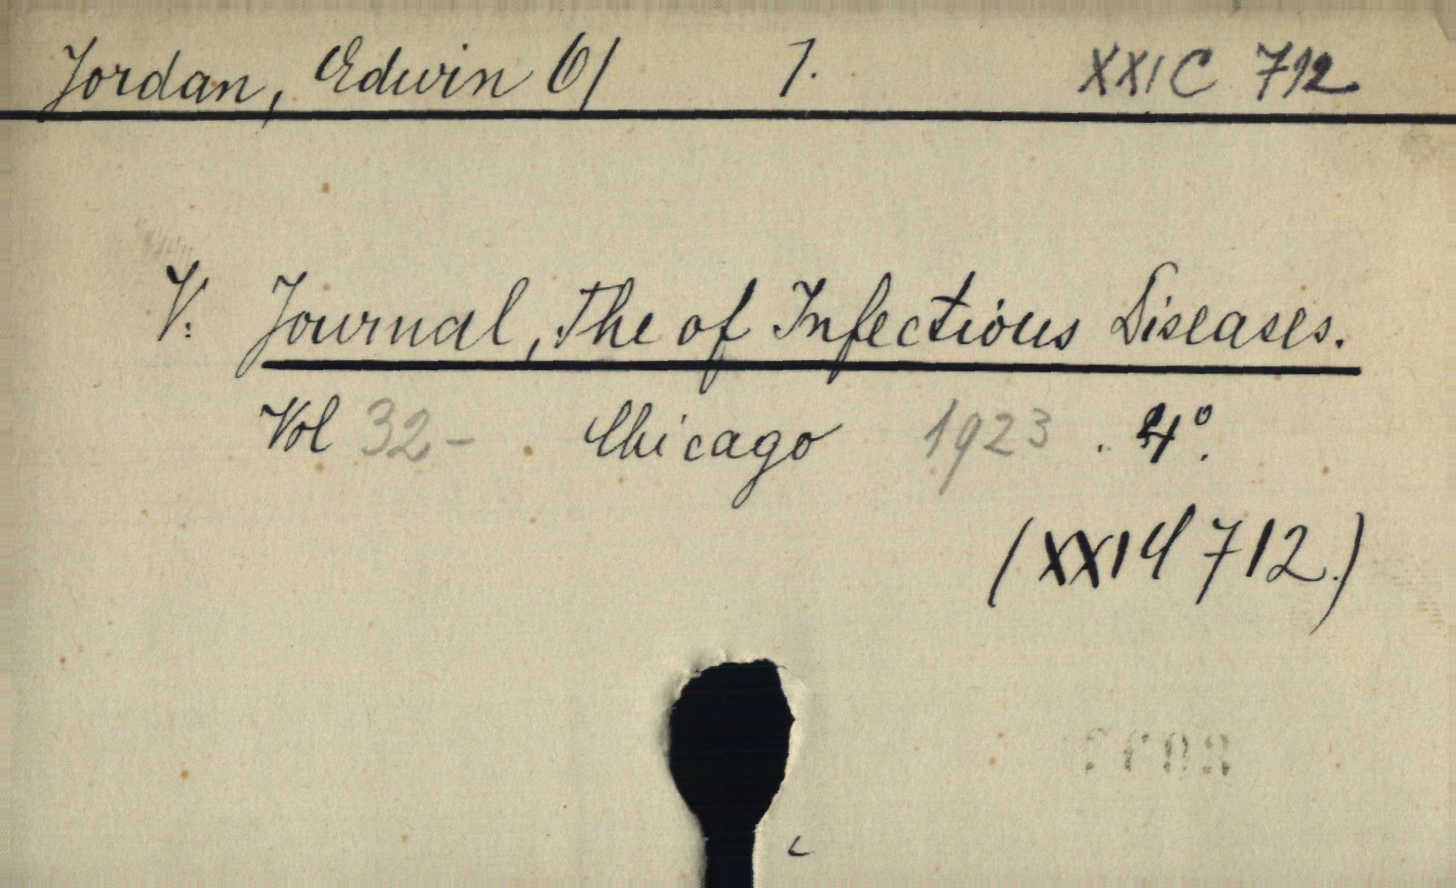 Jordan, Edwin O/ 1. XXI C 712
V: Journal, The of Infectious Diseases.
Vol 32- . Chicago 1923 . 4°.
(XXI C 712.)